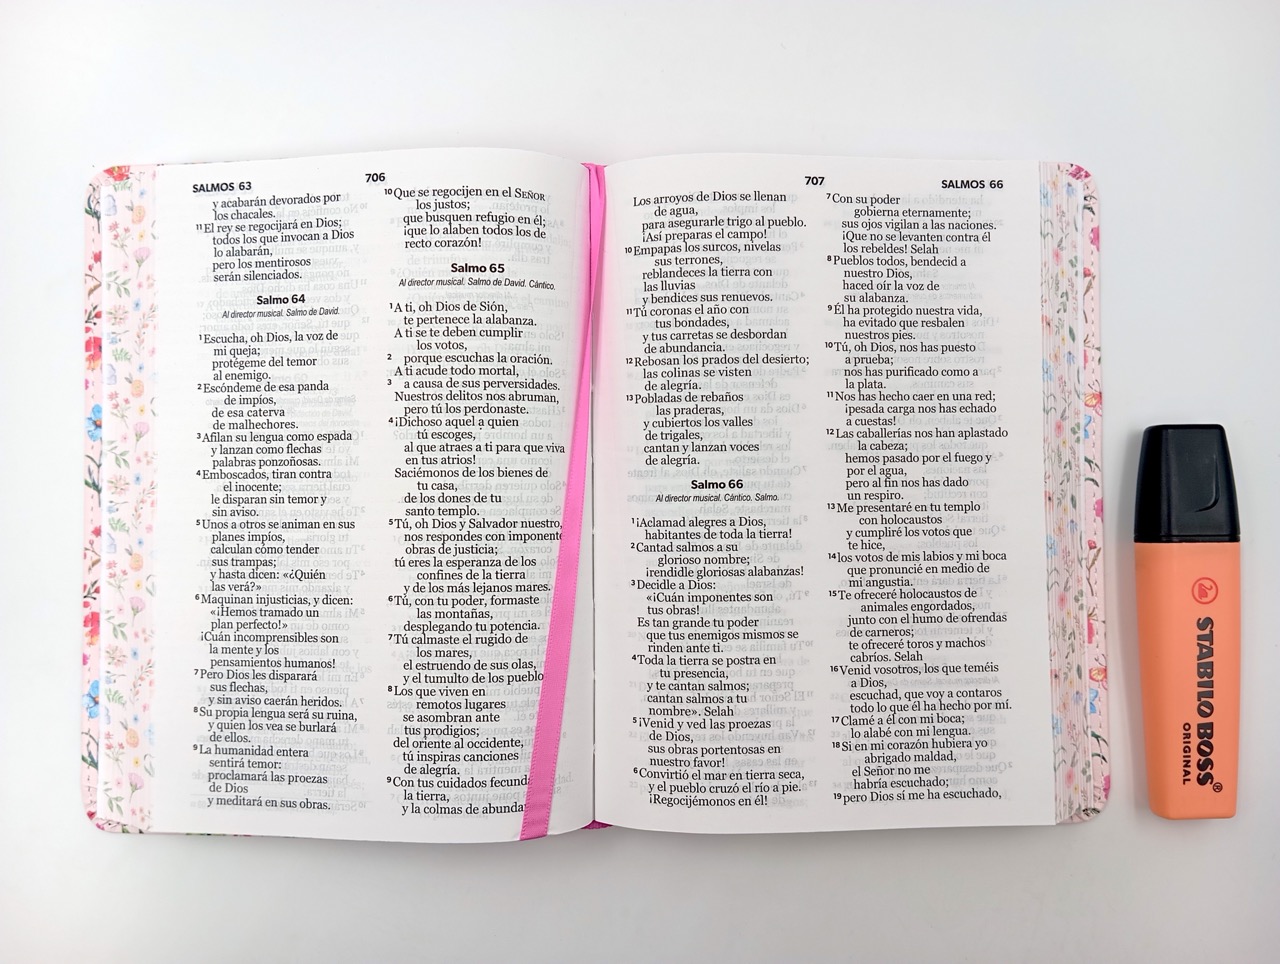 SALMOS 63
706
y acabarán devorados por
los chacales.
11 El rey se regocijará en Dios;
todos los que invocan a Dios
lo alabarán,
pero los mentirosos
serán silenciados.
Salmo 64
Al director musical. Salmo de David.
1 Escucha, oh Dios, la voz de
mi queja;
protégeme del temor
al enemigo.
2 Escóndeme de esa panda
de impíos,
de esa caterva
de malhechores.
3 Afilan su lengua como espada
y lanzan como flechas
palabras ponzoñosas.
4 Emboscados, tiran contra
el inocente;
le disparan sin temor y
sin aviso.
5 Unos a otros se animan en sus
planes impíos,
calculan cómo tender
sus trampas;
y hasta dicen: «¿Quién
las verá?»
6 Maquinan injusticias, y dicen:
«¡Hemos tramado un
plan perfecto!»
¡Cuán incomprensibles son
la mente y los
pensamientos humanos!
7 Pero Dios les disparará
sus flechas,
y sin aviso caerán heridos.
8 Su propia lengua será su ruina,
y quien los vea se burlará
de ellos.
9 La humanidad entera
sentirá temor:
proclamará las proezas
de Dios
y meditará en sus obras.
10 Que se regocijen en el SEÑOR
los justos;
que busquen refugio en él;
¡que lo alaben todos los de
recto corazón!
Salmo 65
Al director musical. Salmo de David. Cántico.
1 A ti, oh Dios de Sión,
te pertenece la alabanza.
A ti se te deben cumplir
los votos,
2 porque escuchas la oración.
A ti acude todo mortal,
3 a causa de sus perversidades.
Nuestros delitos nos abruman,
pero tú los perdonaste.
4 ¡Dichoso aquel a quien
tú escoges,
al que atraes a ti para que viva
en tus atrios!
Saciémonos de los bienes de
tu casa,
de los dones de tu
santo templo.
5 Tú, oh Dios y Salvador nuestro,
nos respondes con imponente
obras de justicia;
tú eres la esperanza de los
confines de la tierra
y de los más lejanos mares.
6 Tú, con tu poder, formaste
las montañas,
desplegando tu potencia.
7 Tú calmaste el rugido de
los mares,
el estruendo de sus olas,
y el tumulto de los pueblo
8 Los que viven en
remotos lugares
se asombran ante
tus prodigios;
del oriente al occidente,
tú inspiras canciones
de alegría.
9 Con tus cuidados fecund
la tierra,
y la colmas de abunda
707
SALMOS 66
Los arroyos de Dios se llenan
de agua,
para asegurarle trigo al pueblo.
¡Así preparas el campo!
10 Empapas los surcos, nivelas
sus terrones,
reblandeces la tierra con
las lluvias
y bendices sus renuevos.
11 Tú coronas el año con
tus bondades,
y tus carretas se desbordan
de abundancia.
12 Rebosan los prados del desierto;
las colinas se visten
de alegría.
13 Pobladas de rebaños
las praderas,
y cubiertos los valles
de trigales,
cantan y lanzan voces
de alegría.
Salmo 66
Al director musical. Cántico. Salmo.
1 ¡Aclamad alegres a Dios,
habitantes de toda la tierra!
2 Cantad salmos a su
glorioso nombre;
¡rendidle gloriosas alabanzas!
3 Decidle a Dios:
«¡Cuán imponentes son
tus obras!
Es tan grande tu poder
que tus enemigos mismos se
rinden ante ti.
4 Toda la tierra se postra en
tu presencia,
y te cantan salmos;
cantan salmos a tu
nombre». Selah
5 ¡Venid y ved las proezas
de Dios,
sus obras portentosas en
nuestro favor!
6 Convirtió el mar en tierra seca,
y el pueblo cruzó el río a pie.
¡Regocijémonos en él!
7 Con su poder
gobierna eternamente;
sus ojos vigilan a las naciones.
¡Que no se levanten contra él
los rebeldes! Selah
8 Pueblos todos, bendecid a
nuestro Dios,
haced oír la voz de
su alabanza.
9 Él ha protegido nuestra vida,
ha evitado que resbalen
nuestros pies.
10 Tú, oh Dios, nos has puesto
a prueba;
nos has purificado como a
la plata.
11 Nos has hecho caer en una red;
¡pesada carga nos has echado
a cuestas!
12 Las caballerías nos han aplastado
la cabeza;
hemos pasado por el fuego y
por el agua,
pero al fin nos has dado
un respiro.
13 Me presentaré en tu templo
con holocaustos
y cumpliré los votos que
te hice,
14 los votos de mis labios y mi boca
que pronuncié en medio de
mi angustia.
15 Te ofreceré holocaustos de
animales engordados,
junto con el humo de ofrendas
de carneros;
te ofreceré toros y machos
cabríos. Selah
16 Venid vosotros, los que teméis
a Dios,
escuchad, que voy a contaros
todo lo que él ha hecho por mí.
17 Clamé a él con mi boca;
lo alabé con mi lengua.
18 Si en mi corazón hubiera yo
abrigado maldad,
el Señor no me
habría escuchado;
19 pero Dios sí me ha escuchado,
STABILO BOSS®
ORIGINAL